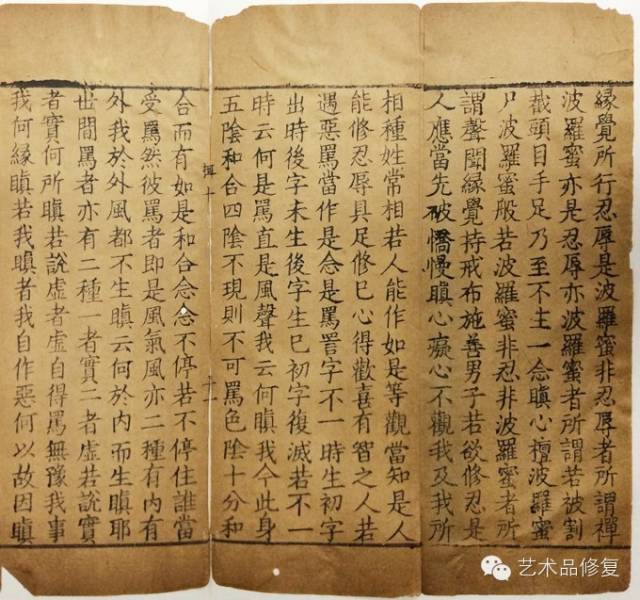 緣覺所行忍辱是波羅蜜非忍辱者所謂禪
波羅蜜亦是忍辱亦波羅蜜者所謂若被割
截頭目手足乃至不生一念瞋心檀波羅蜜
尸波羅蜜般若波羅蜜非忍非波羅蜜者所
謂聲聞緣覺持戒布施善男子若欲修忍是
人應當先破憍慢瞋心癡心不觀我及我所
相種姓常相若人能作如是等觀當知是人
能修忍辱具足修已心得歡喜有智之人若
遇惡罵當作是念是罵詈字不一時生初字
出時後字未生後字生已初字復滅若不一
時云何是罵直是風聲我云何瞋我今此身
五陰和合四陰不現則不可罵色陰十分和
合而有如是和合念念不停若不停住誰當
受罵然彼罵者即是風氣風亦二種有內有
外我於外風都不生瞋云何於內而生瞋耶
世間罵者亦有二種一者實二者虛若說實
者實何所瞋若說虛者虛自得罵無豫我事
我何緣瞋若我瞋者我自作惡何以故因瞋
艺术品修复